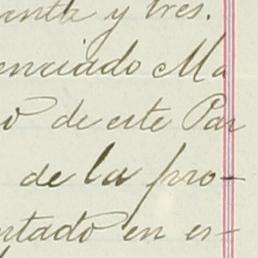 enta y tres.
enciado Ma
o de este Par
de la pro-
ntado en es-